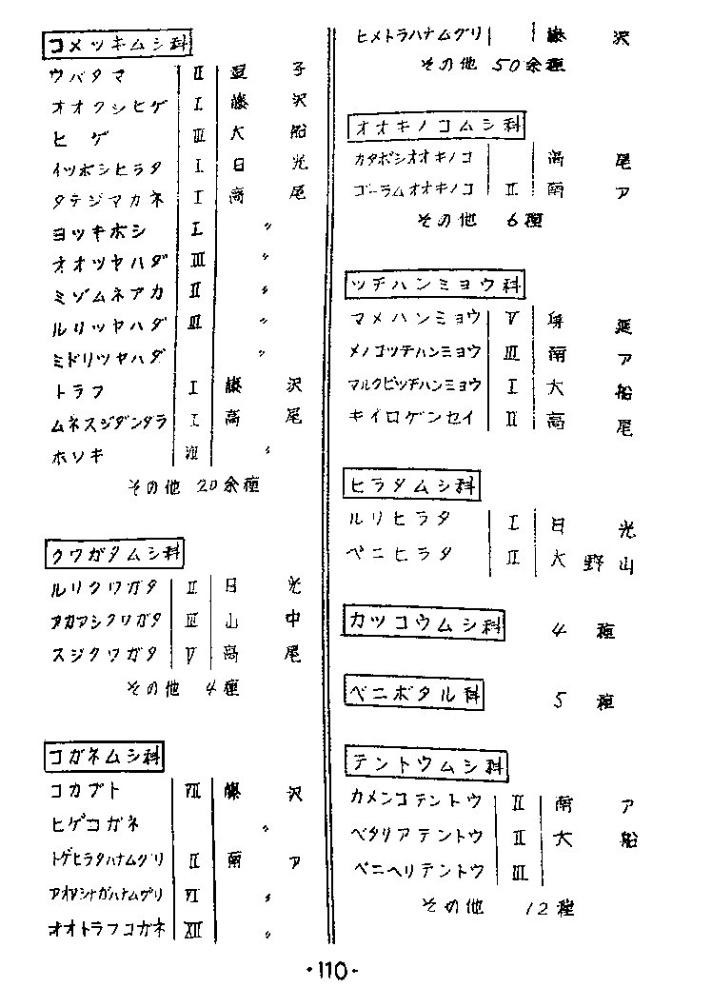 コメツキムシ科
ウバタマ Ⅱ 逗子
オオクシヒゲ Ⅰ 藤沢
ヒゲ Ⅲ 大船
イツボシヒラタ Ⅰ 日光
タテジマカネ Ⅰ 高尾
ヨツキボシ Ⅰ 〃
オオツヤハダ Ⅲ 〃
ミゾムネアカ Ⅱ 〃
ルリツヤハダ Ⅲ 〃
ミドリツヤハダ 〃
トラフ Ⅰ 藤沢
ムネスジダンダラ Ⅰ 高尾
ホソキ Ⅶ 〃
その他 20余種
クワガタムシ科
ルリクワガタ Ⅱ 日光
アカアシクワガタ Ⅲ 山中
スジクワガタ Ⅴ 高尾
その他 4種
コガネムシ科
コカブト Ⅶ 藤沢
ヒゲコガネ 〃
トゲヒラタハナムグリ Ⅱ 南ア
アオアシナガハナムグリ Ⅵ 〃
オオトラフコガネ Ⅻ 〃
ヒメトラハナムグリ 藤沢
その他 50余種
オオキノコムシ科
カタボシオオキノコ 高尾
ゴーラムオオキノコ Ⅱ 南ア
その他 6種
ツチハンミョウ科
マメハンミョウ Ⅴ 身延
メノコツチハンミョウ Ⅲ 南ア
マルクビツチハンミョウ Ⅰ 大船
キイロゲンセイ Ⅱ 高尾
ヒラタムシ科
ルリヒラタ Ⅰ 日光
ベニヒラタ Ⅱ 大野山
カッコウムシ科 4種
ベニボタル科 5種
テントウムシ科
カメンコテントウ Ⅱ 南ア
ベタリアテントウ Ⅱ 大船
ベニヘリテントウ Ⅲ
その他 12種
・110・